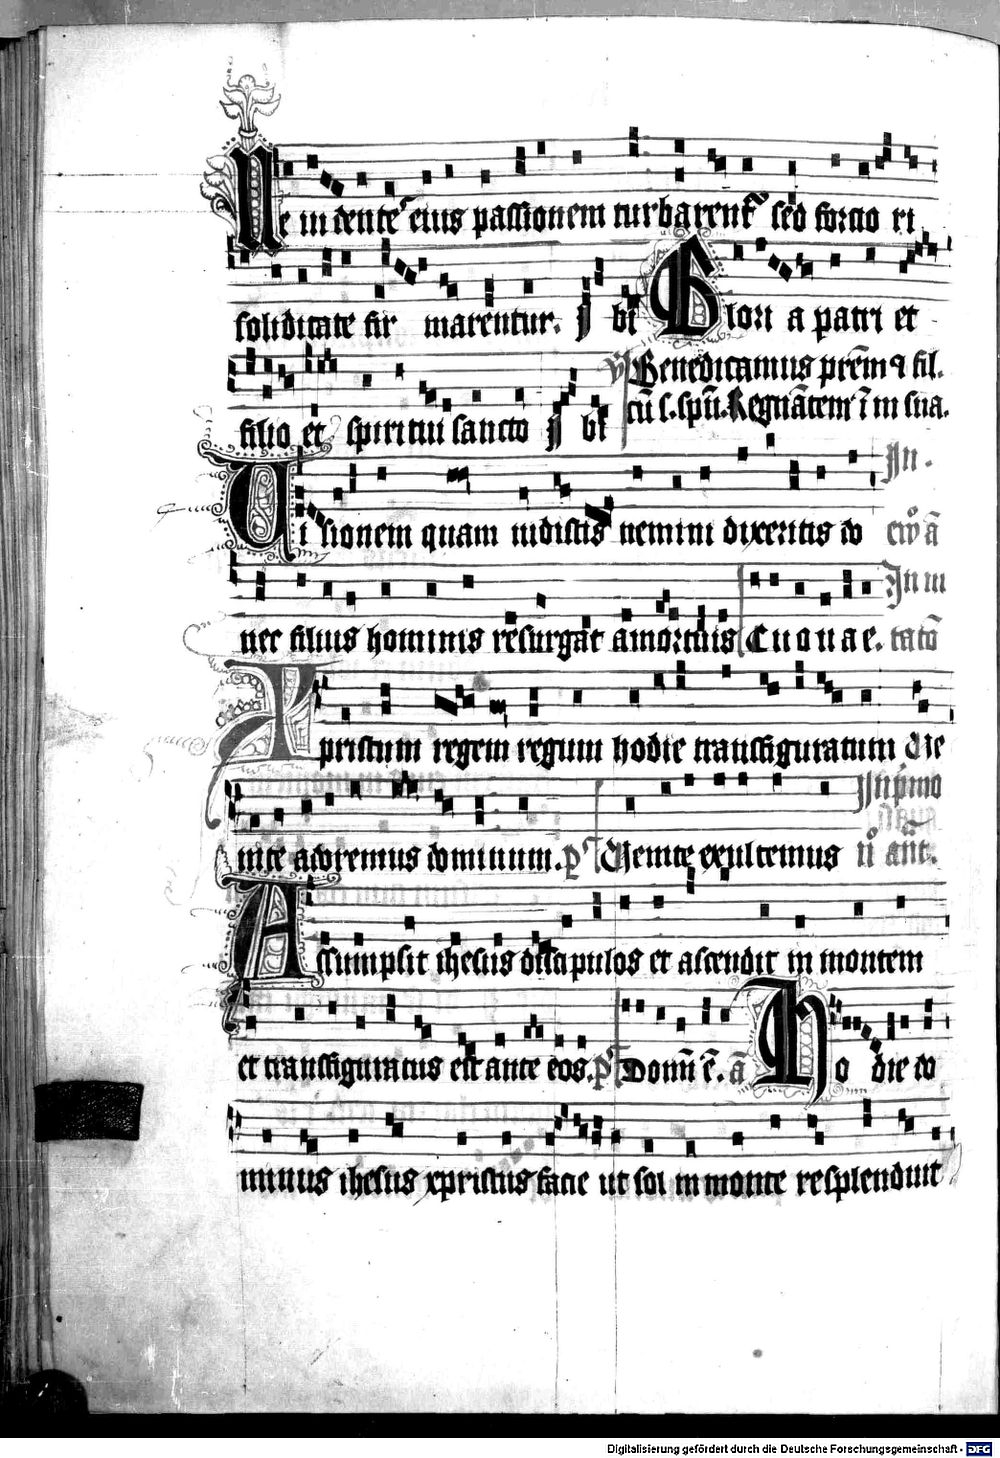 Ne indente eius passionem turbarent sed forcio ri
soliditate fir marentur. Glori a patri et
filio et spiritui sancto
Benedicamus prem et fil.
cu s. spu. Regnatem i in sua.
Uisionem quam uidistis nemini dixeritis do
nec filius hominis resurgat amortuis Euouae.
Xpristum regem regum hodie transfiguratum die
nite adoremus dominum. ps Uenite exultemus
Assumpsit ihesus discipulos et ascendit in montem
et transfiguratus est ante eos. ps Domi e. a Ho die do
minus ihesus xpristus facie ut sol in monte resplenduit
Digitalisierung gefördert durch die Deutsche Forschungsgemeinschaft - DFG